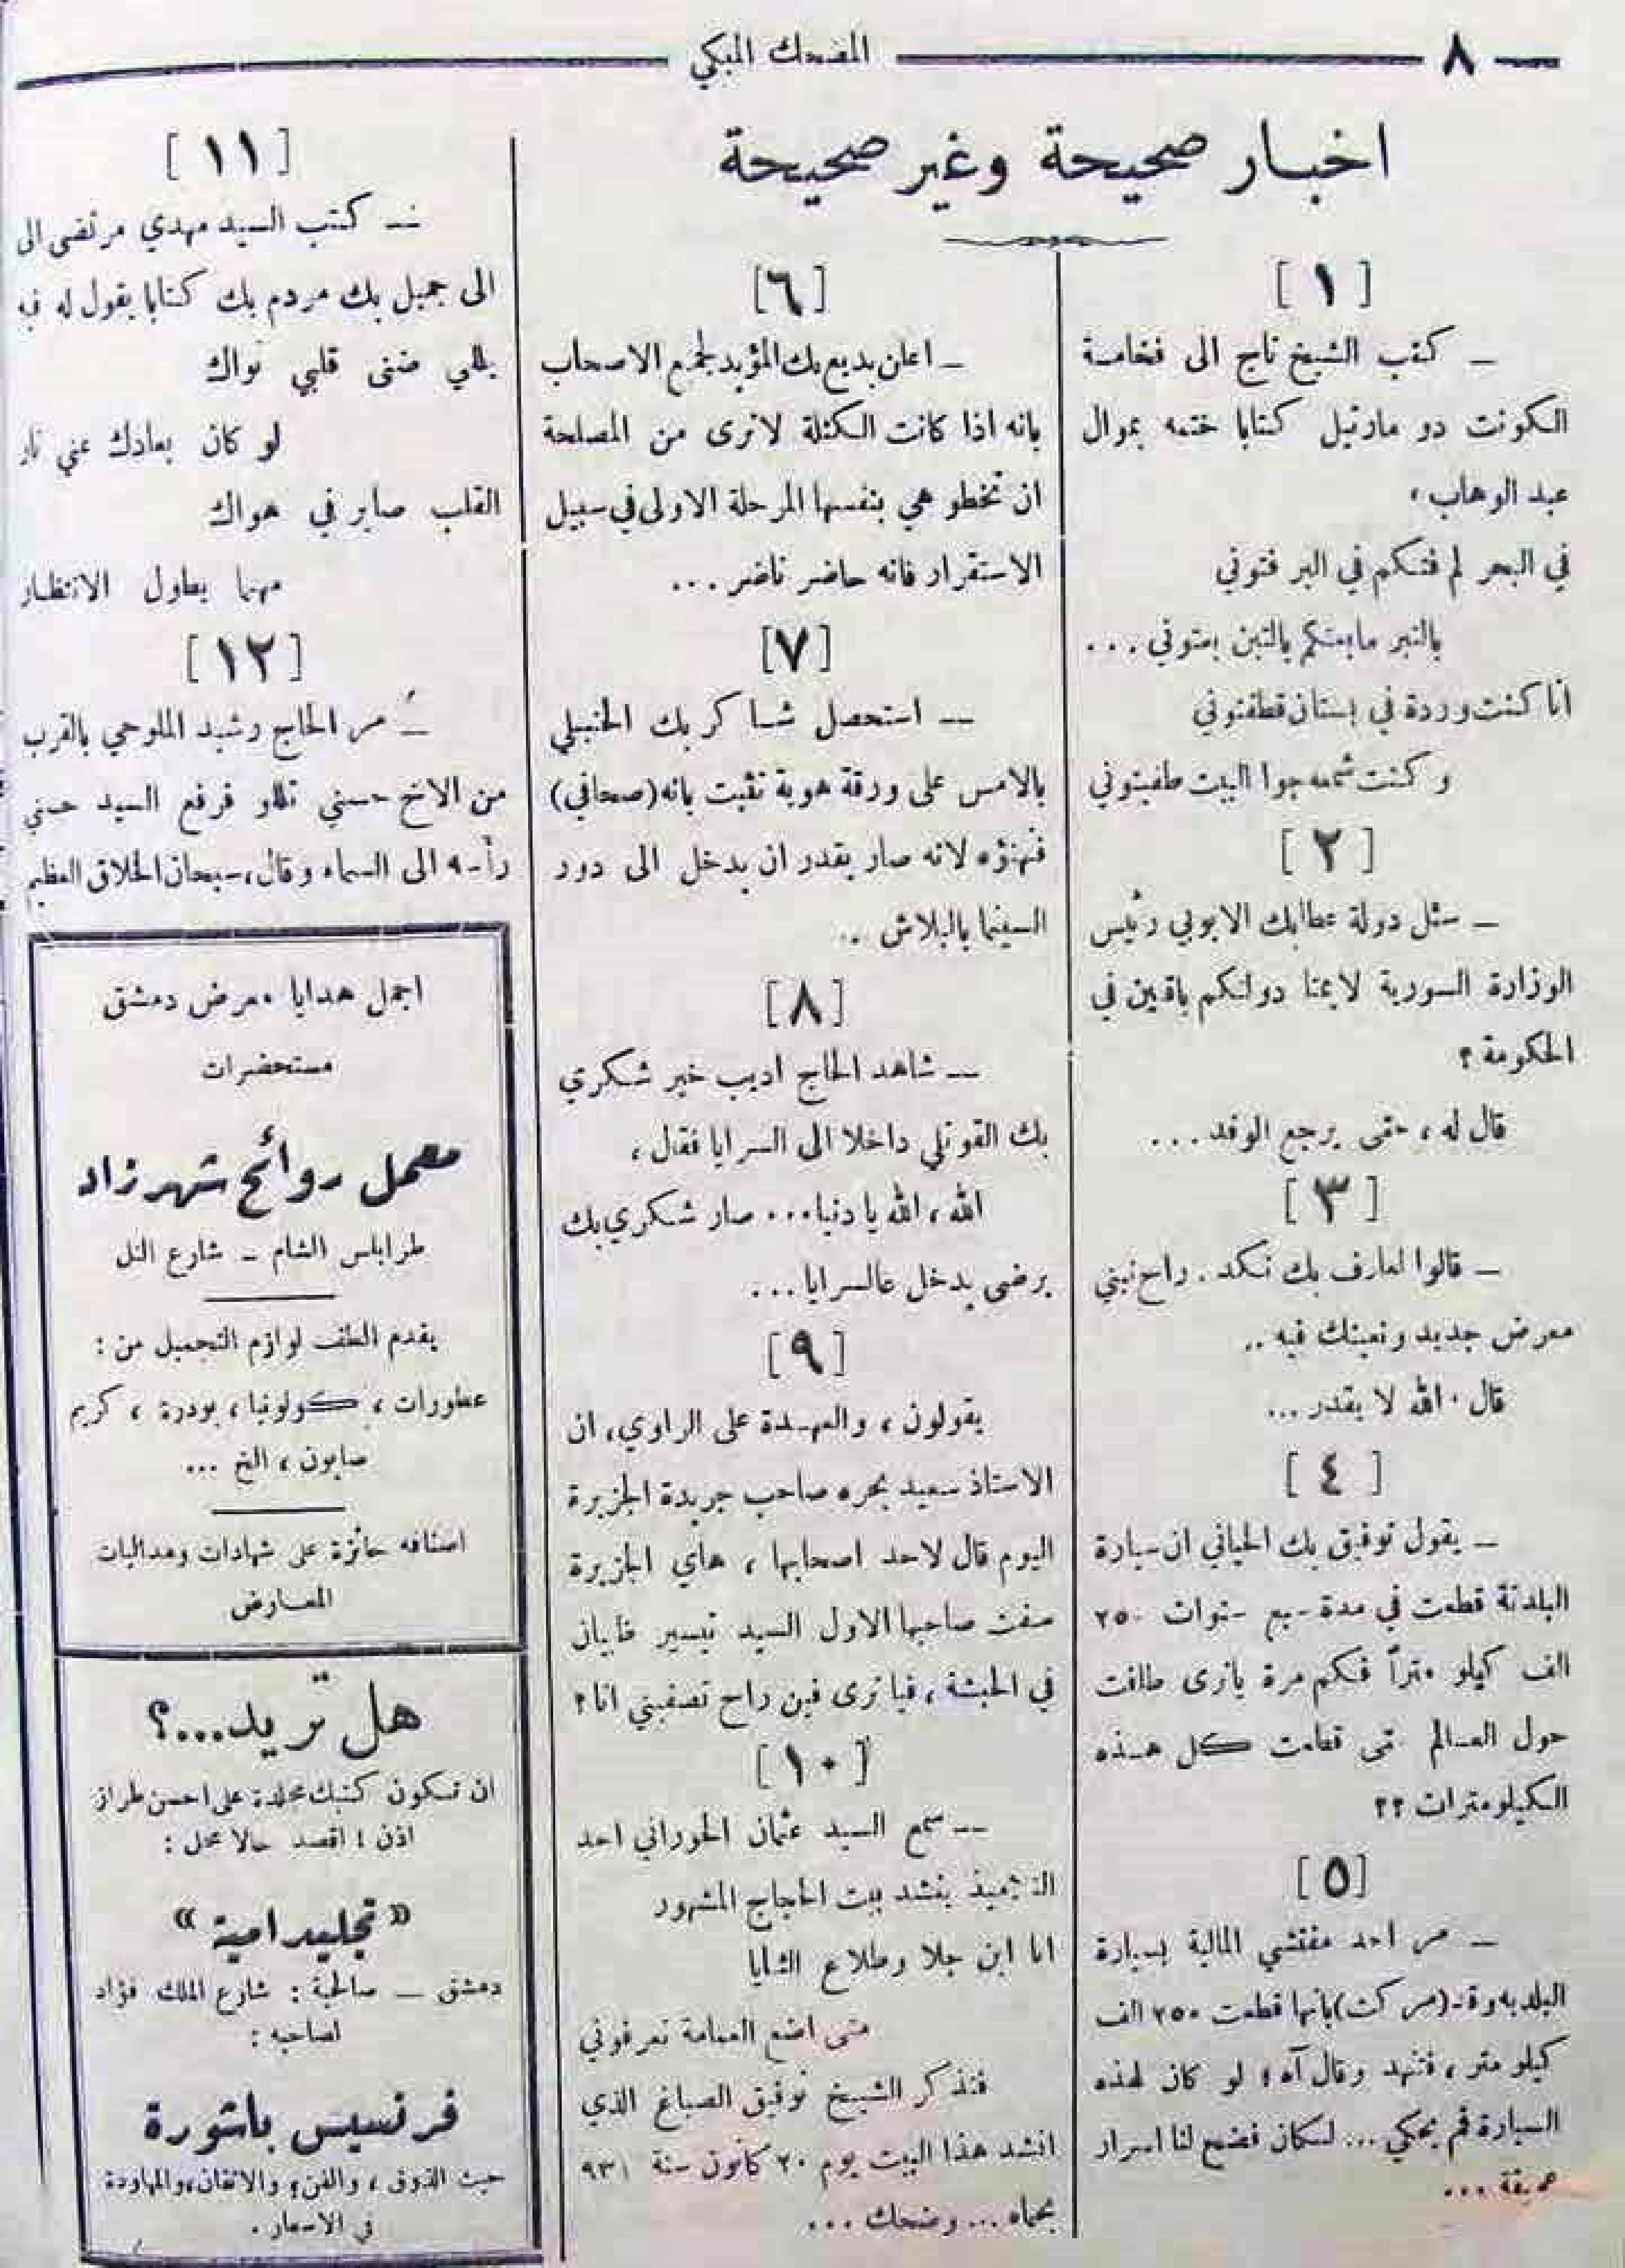 ٨
المضحك المبكي
اخبار صحيحة وغير صحيحة
[١]
ـ كتب الشيخ تاج الى فخامة
الكونت دو مارتيل كتابا ختمه بموال
عبد الوهاب ،
في البحر لم فتكم في البر فتوني
بالتبر مابعتكم بالتبن بعتوني ...
انا كنت وردة في بستان قطفتوني
وكنت شمعه جوا البيت طفيتوني
[٢]
ـ سئل دولة عطابك الايوبي رئيس
الوزارة السورية لايمتا دولتكم باقين في
الحكومة ؟
قال له ، حتى يرجع الوفد ...
[٣]
ـ قالوا لعارف بك نكد . راح نبني
معرض جديد ونعينك فيه ..
قال . الله لا يقدر ...
[٤]
ـ يقول توفيق بك الحياني ان سيارة
البلدية قطعت في مدة سبع سنوات ٢٥٠
الف كيلو متراً فكم مرة يا ترى طافت
حول العالم حتى قطعت كل هذه
الكيلومترات ؟؟
[٥]
ـ مر احد مفتشي المالية بسيارة
البلديه (مركت) بانها قطعت ٢٥٠ الف
كيلو متر ، فتنهد وقال آه ! لو كان لهذه
السيارة فم يحكي ... لكان فضح لنا اسرار
عميقة ...
[٦]
ـ اعلن بديع بك المؤيد لجميع الاصحاب
بانه اذا كانت الكتلة لاترى من المصلحة
ان تخطو هي بنفسها المرحلة الاولى في سبيل
الاستقرار فانه حاضر ناضر ...
[٧]
ـ استحصل شاكر بك الحنبلي
بالامس على ورقة هوية تثبت بانه (صحافي)
فنهنؤه لانه صار يقدر ان يدخل الى دور
السينما بالبلاش ..
[٨]
ـ شاهد الحاج اديب خير شكري
بك القوتلي داخلا الى السرايا فقال ،
الله ، الله يا دنيا... صار شكري بك
يرضى يدخل عالسرايا ...
[٩]
يقولون ، والعهدة على الراوي ، ان
الاستاذ سعيد بحره صاحب جريدة الجزيرة
اليوم قال لاحد اصحابها ، هاي الجزيرة
صفت صاحبها الاول السيد تيسير ظبيان
في الحبشة ، فيا ترى فين راح تصفيني انا ؟
[١٠]
ـ سمع السيد عثمان الحوراني احد
التلاميذ ينشد بيت الحجاج المشهور
انا ابن جلا وطلاع الثنايا
متى اضع العمامة تعرفوني
فتذكر الشيخ توفيق الصباغ الذي
انشد هذا البيت يوم ٢٠ كانون سنة ٩٣١
بحماه ... وضحك ...
[١١]
ـ كتب السيد مهدي مرتضى الى
الى جميل بك مردم بك كتابا يقول له فيه
يللي ضنى قلبي نواك
لو كان بعادك عني نار
القلب صابر في هواك
مهما يطول الانتظار
[١٢]
ـ مر الحاج رشيد الملوحي بالقرب
من الاخ حسني تللو فرفع السيد حسني
رأسه الى السماء وقال ، سبحان الخلاق العظيم
اجمل هدايا معرض دمشق
مستحضرات
معمل روائح شهرزاد
طرابلس الشام ـ شارع التل
يقدم الطف لوازم التجميل من :
عطورات ، كولونيا ، بودرة ، كريم
صابون ، الخ ...
اصنافه حائزة على شهادات ومداليات
المعارض
هل تريد...؟
ان تكون كتبك مجلدة على احسن طراز
اذن ! اقصد حالا محل :
« تجليد امية »
دمشق ـ صالحية : شارع الملك فؤاد
لصاحبه :
فرنسيس باشورة
حيث الذوق ، والفن ، والاتقان ، والمهاودة
في الاسعار .